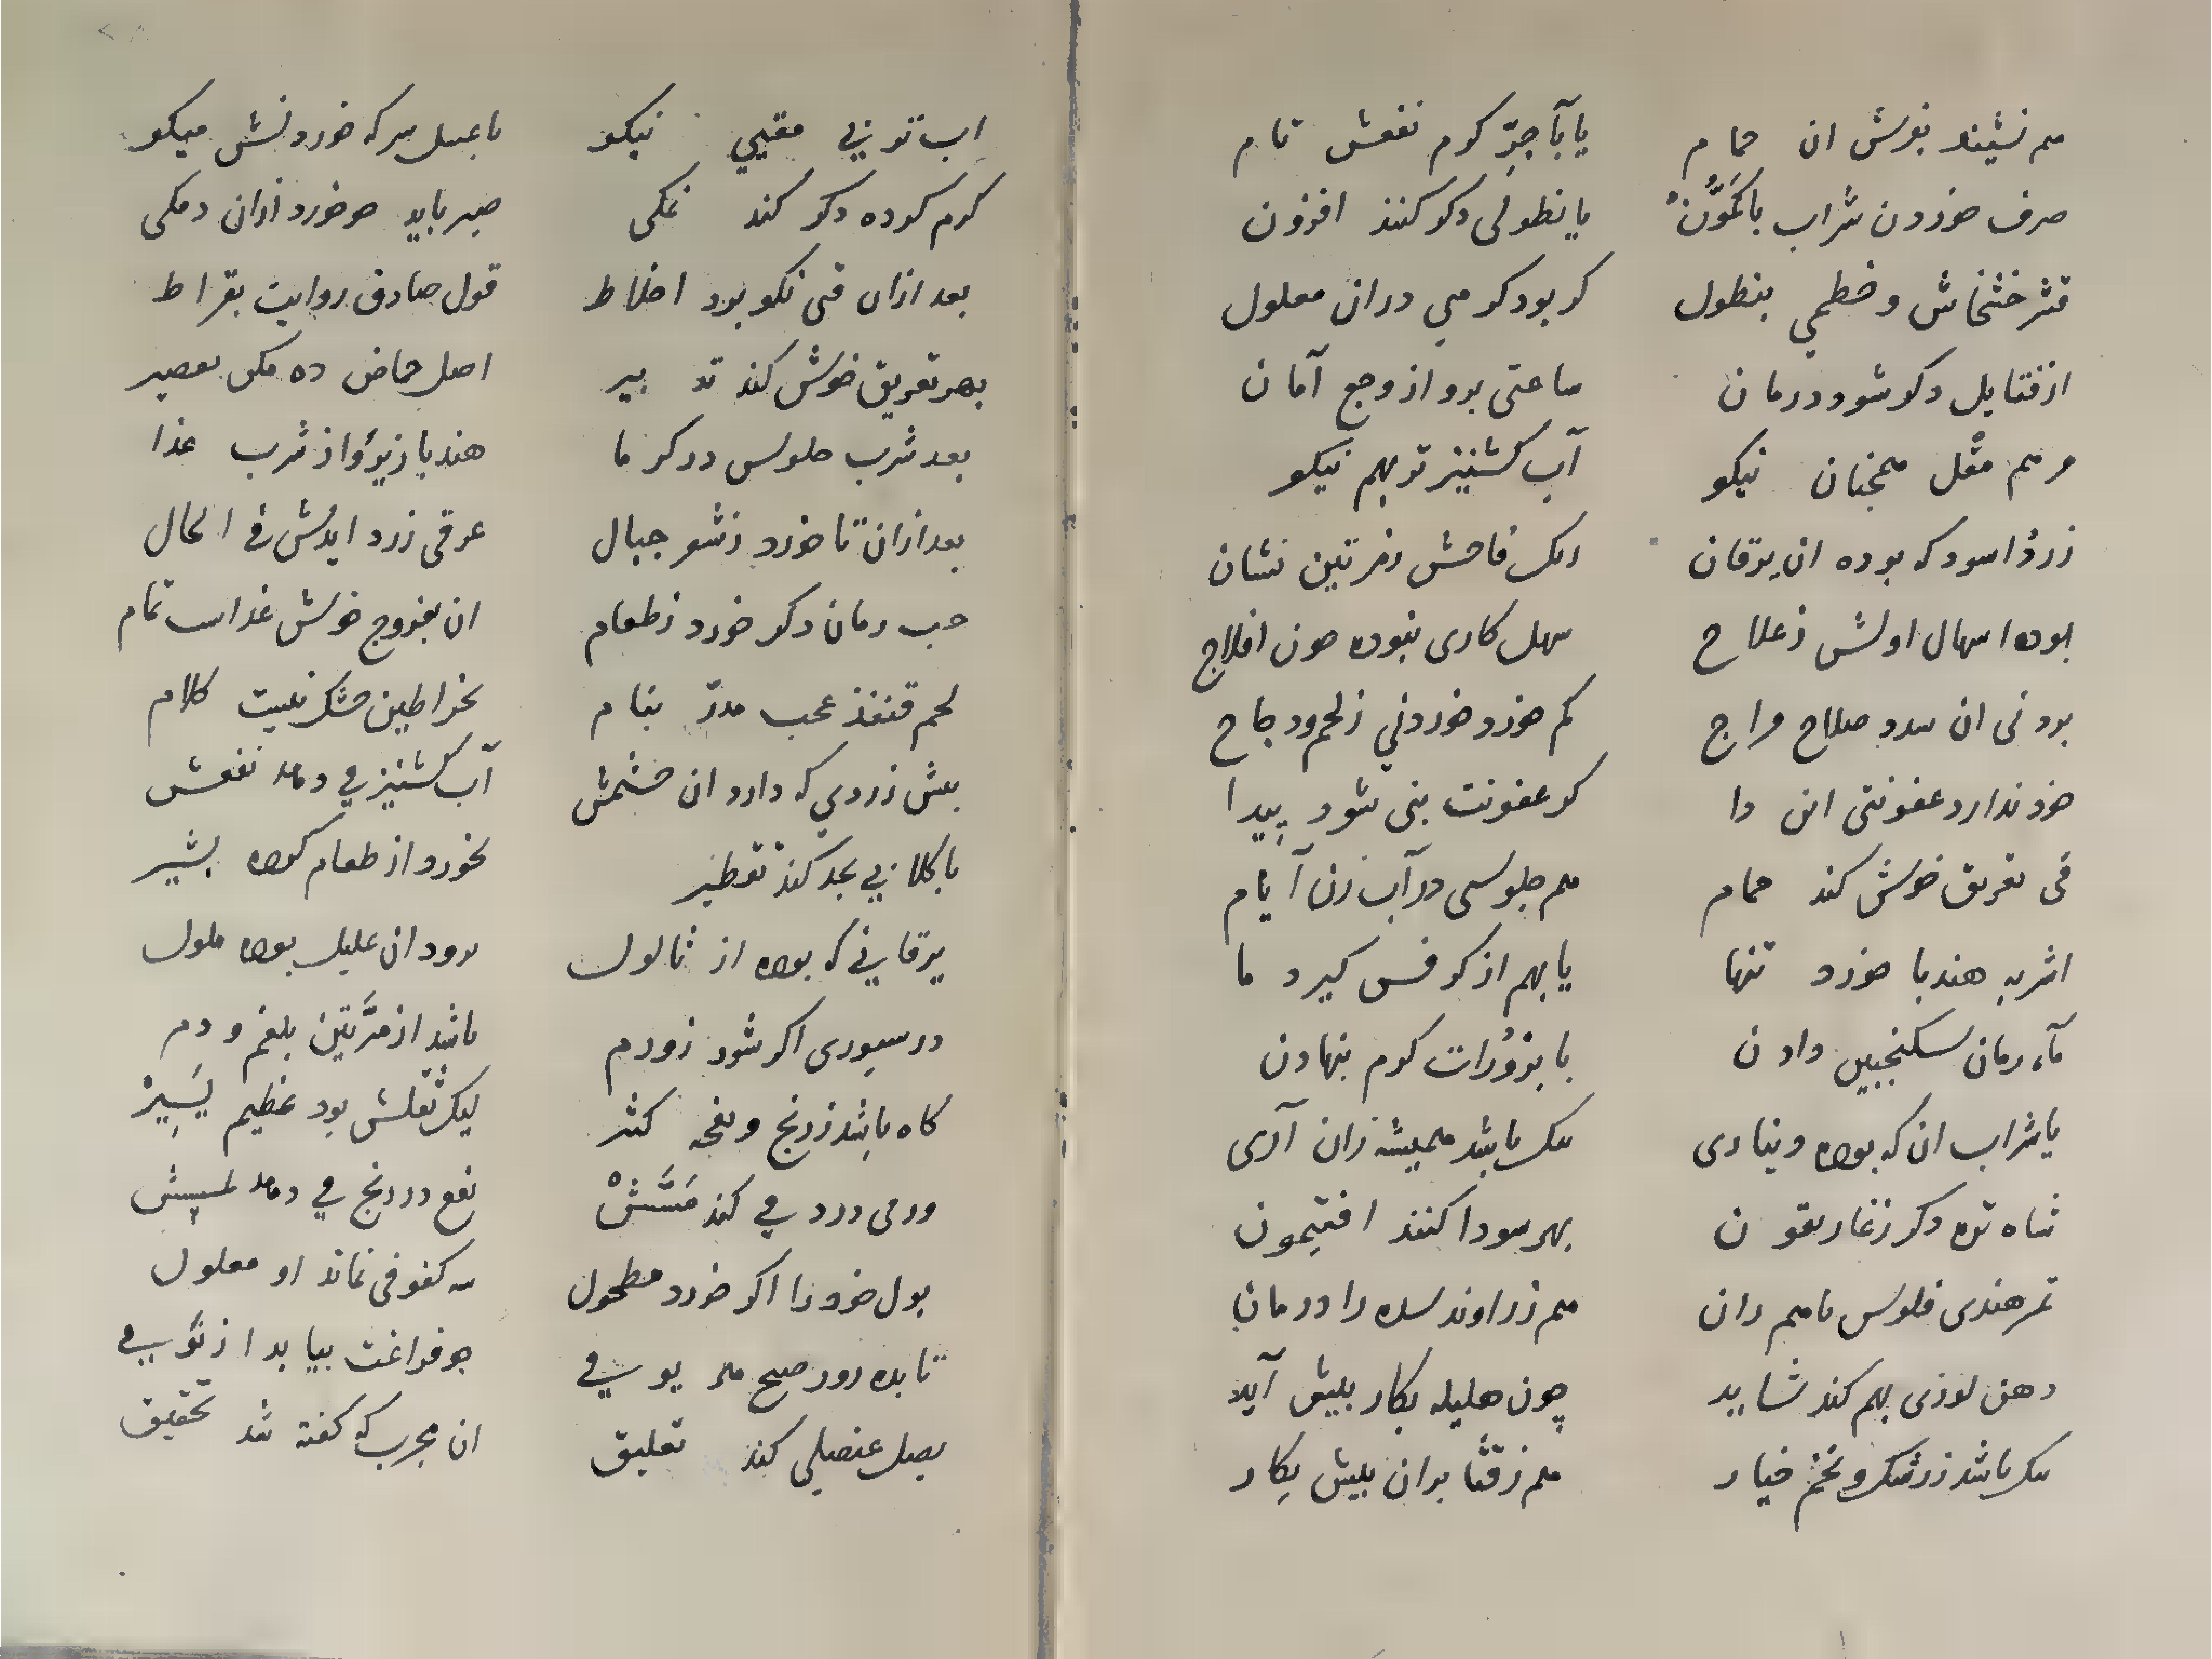 هم نشیند بعرش ان حمام یا بآجرّ کرم نفعش تام
صرف خوردن شراب باکمّون یا نطولی دکر کنند افزون
قشر خشخاش و خطمی بنطول کر بود کرمی دران معلول
از فتایل دکر شود درمان ساعتی برد از وجع آمان
مرهم مقل همچنان نیکو آب کشنیز تو بهم نیکو
زرد اسود که بوده ان یرقان رنک فاحش زمرتین نشان
بوده اسهال اولش ز علاح سهل کاری نبوده چون افلاج
بود نی ان سدد صلاح مراج کم خورد خوردنی ز لحم دجاح
خود ندارد عفونتی این دا کر عفونت بنی شود پیدا
قی تعریق خوش کند حمام هم جلوسی در آب زن آیام
اشربه هندبا خورد تنها یا بهم از کرفس کیرد ما
مآء رمان سکنجبین دادن با بزورات کرم بنهادن
یا شراب ان که بوده دیناری نیک باشد همیشه زان آری
شاه تره دکر ز غاریقون بهر سودا کنند افتیمون
تمر هندی فلوس باهم دان هم زراوند سده را درمان
دهن لوزی بهم کند شاید چون هلیله بکار بیش آید
نیک باشد زرشک و تخم خیار هم ز قثا بران بیش بکار
اب ترب یی مقیی نیکو با عسل سرکه خوردنش میکو
کرم کرده دکر کند نمکی صبر باید چو خورد ازان دمکی
بعد ازان قی نکو برد اخلاط قول صادق روایت بقراط
بهر تعریق خوش کند تدبیر اصل حماض ده مکن تعصیر
بعد شرب جلوس در کرما هندبا زیرو از شرب غذا
بعد ازان تا خورد ز شعر جبال عرقی زرد ایدش فی الحال
حب رمان دکر خورد ز طعام ان بفروج خوش غذاست تمام
لحم قنفذ عجب مدرّ بنام بخراطین خشک نیست کلام
بعش زردی که دارد ان چشمش آب کشنیز می دهد نفعش
باکلا زیی بجد کند تقطیر بخورد از طعام کوده بشیر
یرقانی که بوده از ثالول برود ان علیل بوده ملول
در سبوری اکر شود ز ورم باشد از مرّتین بلغم و دم
کاه باشد ز رنج و نفخه کثر لیک ثقلش بود عظیم یسیر
ورمی درد می کند مسّش نفع در رنج می دهد لمسش
بول خود را اکر خورد مطحول سه کفوفی نماند او معلول
تا بده روز صبح هر یومی چو فراغت بیابد از نومی
بصل عنصلی کند تعلیق ان مجرب که کفته شد تحقیق